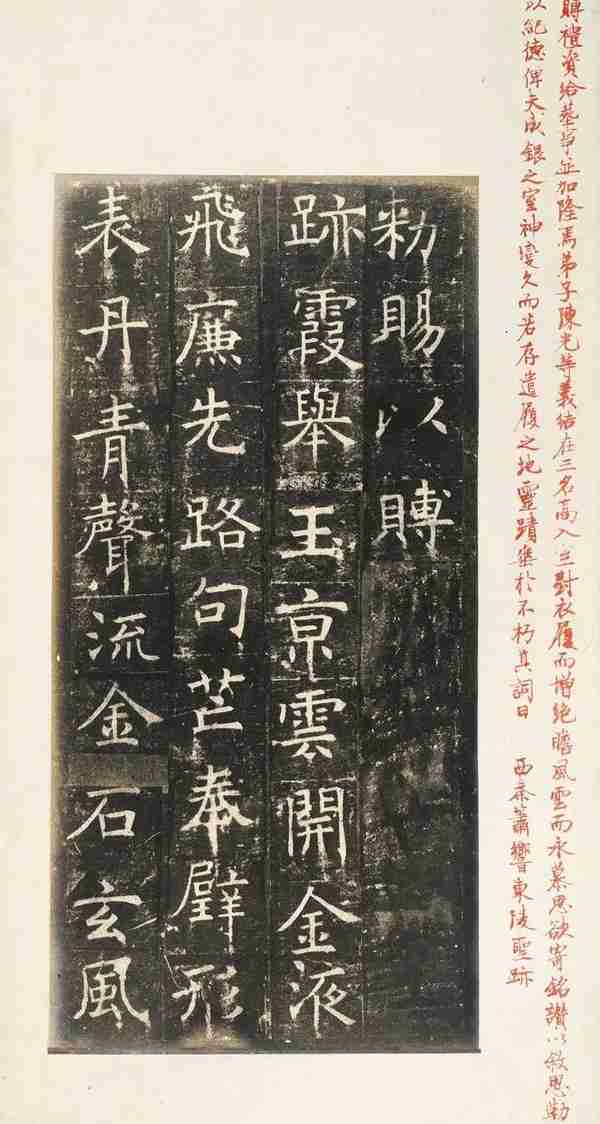 賻禮資給葬事並加隆焉弟子陳光等義結在三名高入對衣履而增絶瞻風雲而永慕思欲寄銘讚以敘思勒
以紀德俾夫成銀之室神變久而若存遺履之地靈蹟於不朽其詞曰 西奈簫響東陵聖跡
勑賜以賻
跡霞舉玉亰雲開金液
飛廉先路句芒奉璧形
表丹青聲流金石玄風